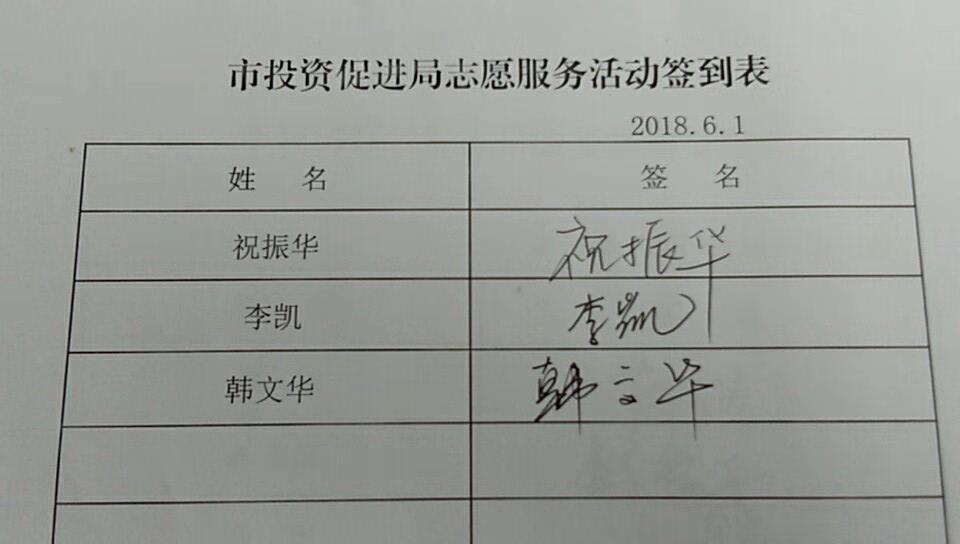 市投资促进局志愿服务活动签到表
2018.6.1
姓 名 签 名
祝振华 祝振华
李凯 李凯
韩文华 韩文华